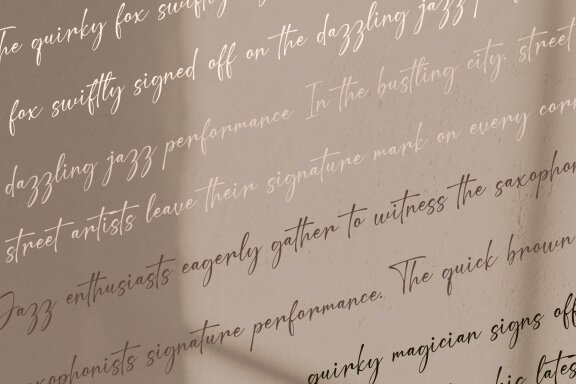 The quirky fox swiftly
fox swiftly signed off on the dazzling jazz
dazzling jazz performance In the bustling city, street
street artists leave their signature mark on every
Jazz enthusiasts eagerly gather to witness the
signature performance. The quick brown
quirky magician signs off